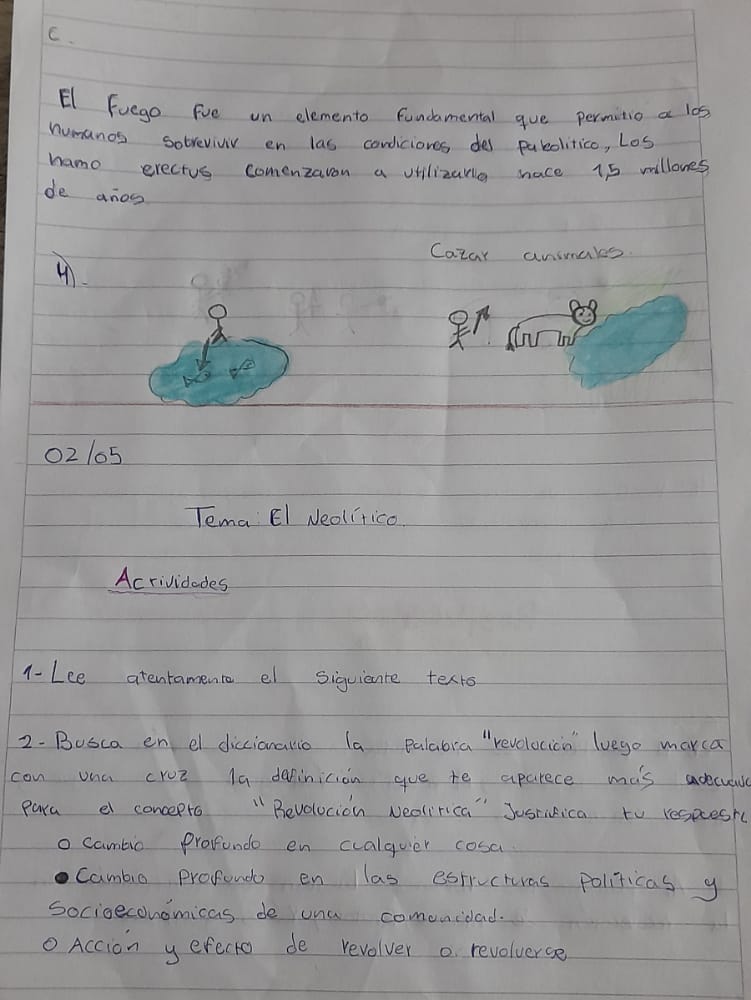 C.
El fuego fue un elemento fundamental que permitio a los
humanos sobrevivir en las condiciones del paleolitico, Los
hamo erectus comenzaron a utilizarlo hace 1,5 millones
de años
Cazar animales.
4).
02/05
Tema: El Neolítico.
Actividades
1- Lee atentamente el siguiente texto
2- Busca en el diccionario la palabra "revolución" luego marca
con una cruz la definición que te aparece más adecuada
para el concepto "Revolución Neolitica" Justifica tu respuesta
o Cambio Profundo en cualquier cosa.
• Cambio profundo en las estructuras políticas y
Socioeconómicas de una comunidad.
o Acción y efecto de revolver o revolverse